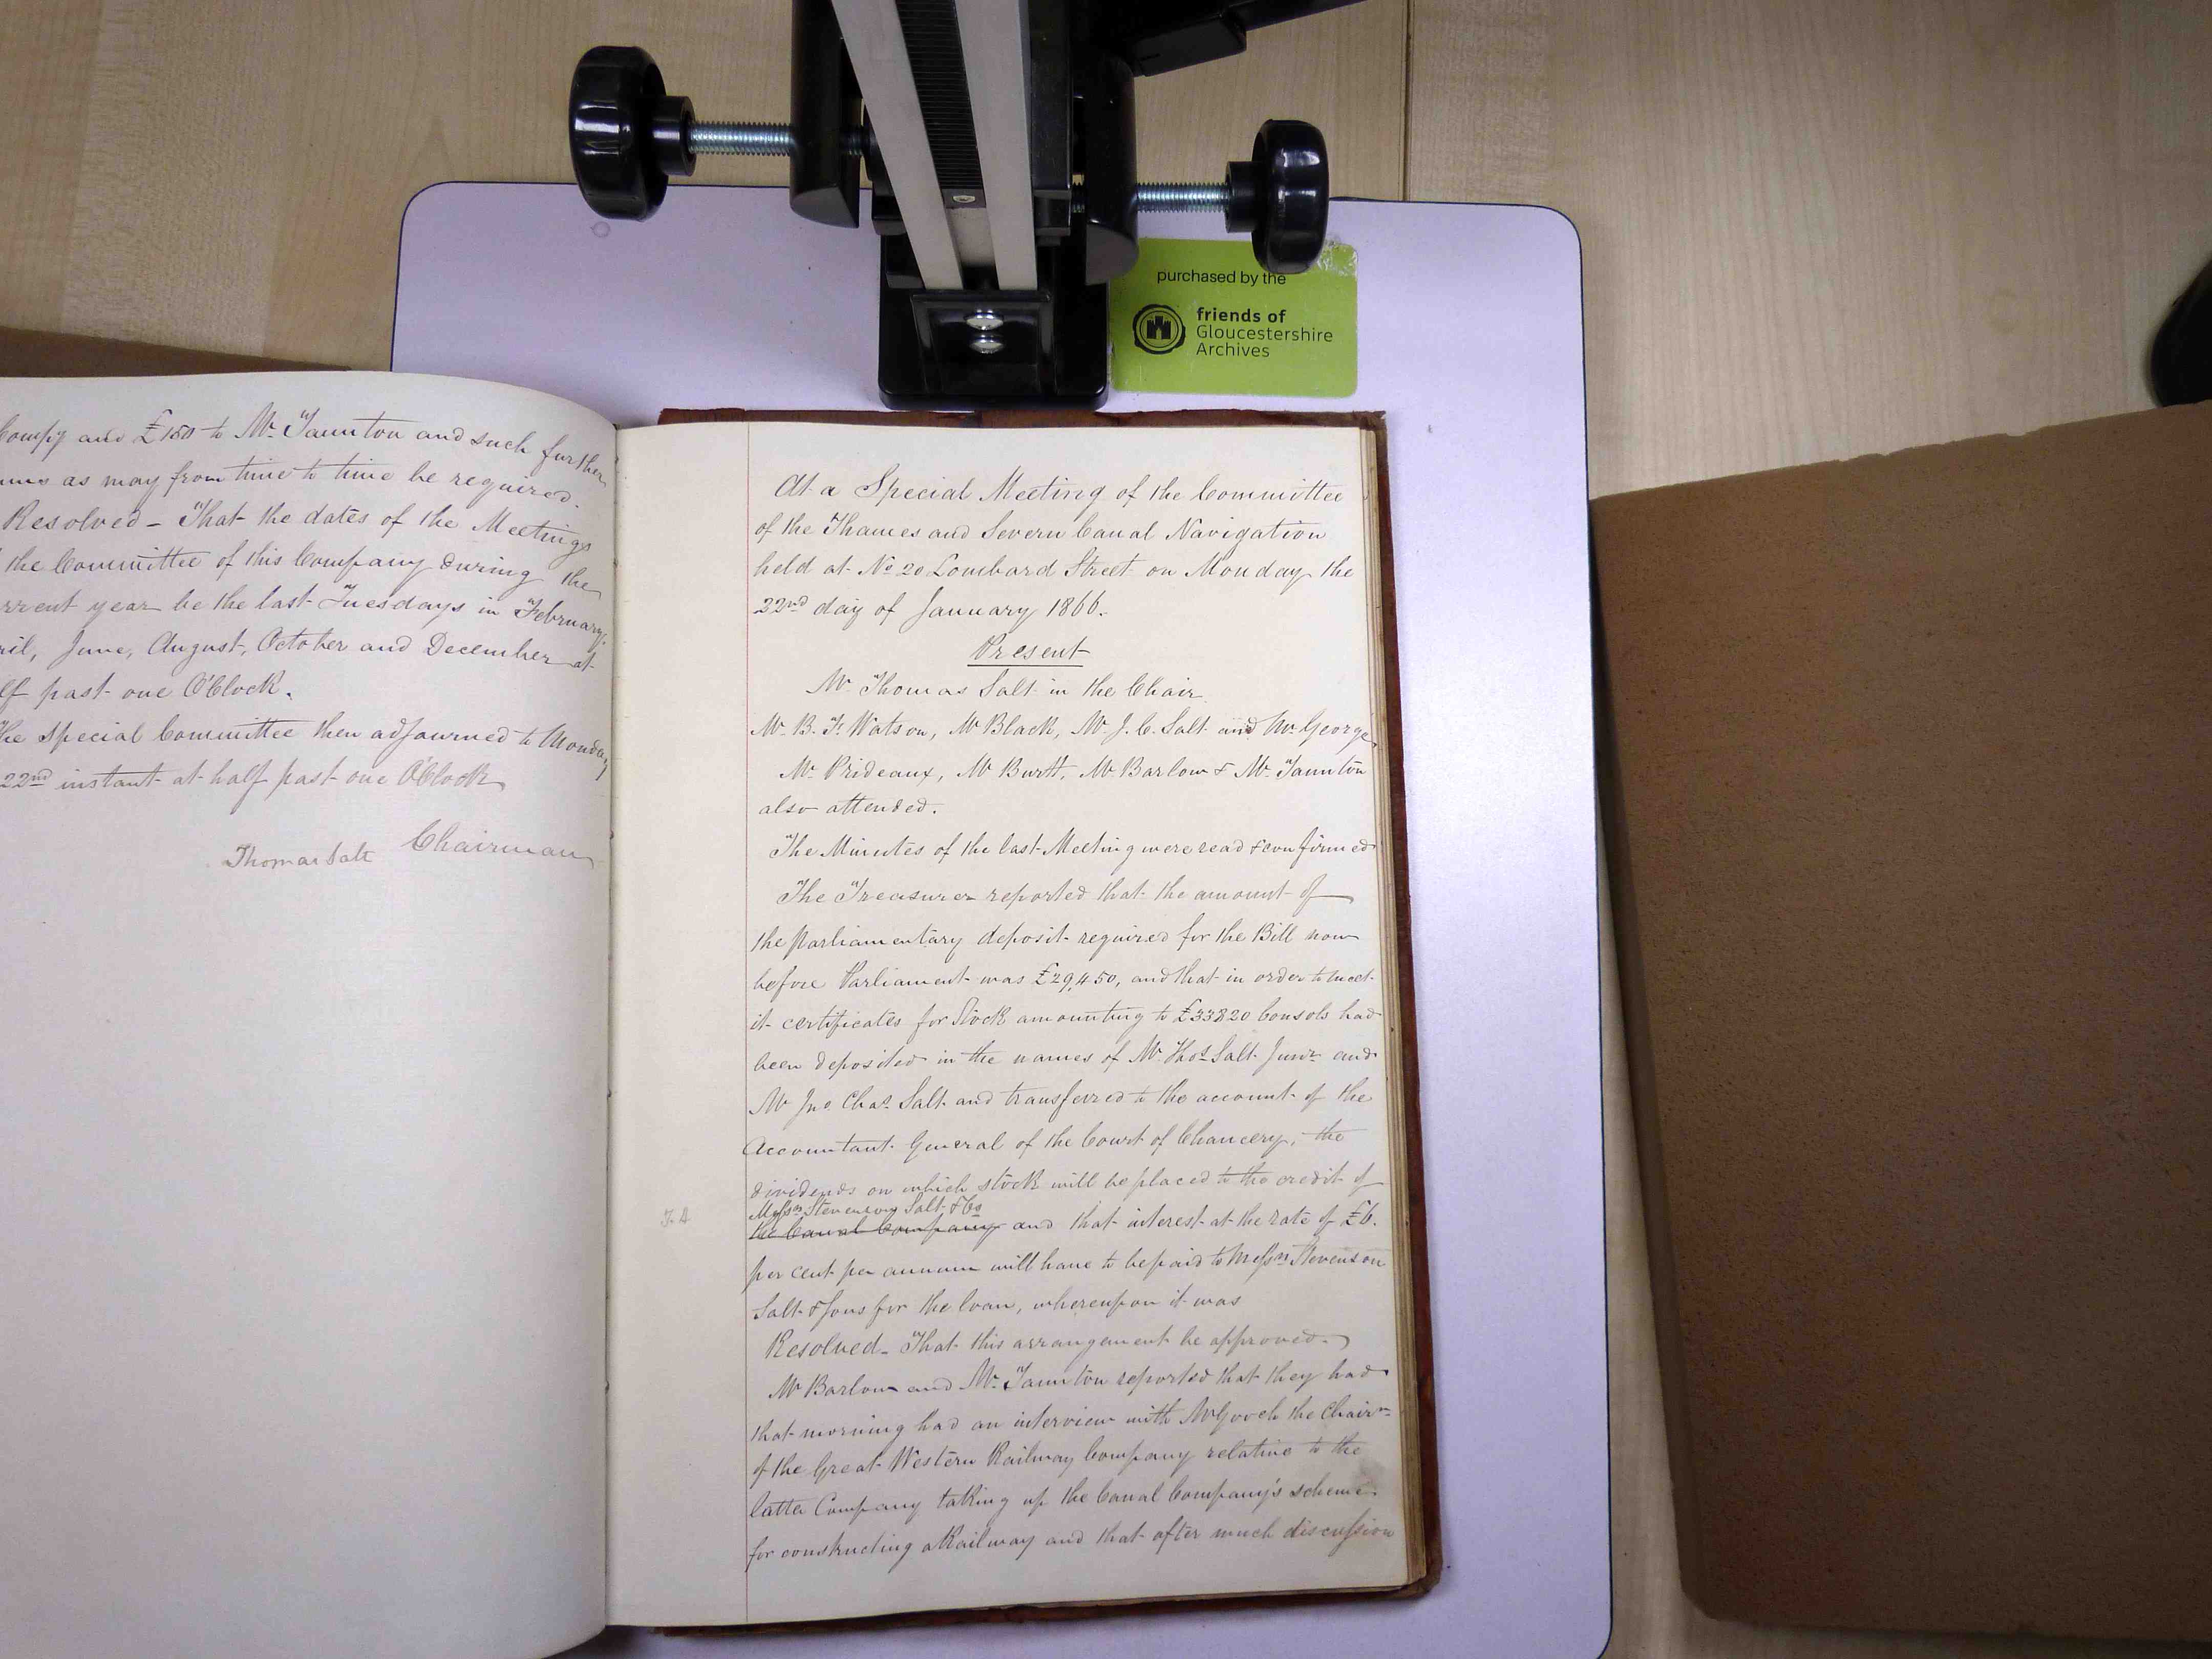 purchased by the
friends of
Gloucestershire
Archives
Compy and £150 to Mr. Taunton and such further
as may from time to time be required.
Resolved - That the dates of the Meetings
the Committee of this Company during the
rrent year be the last Tuesdays in February,
ril, June, August, October and December at
lf past one O'Clock.
The special Committee then adjourned to Monday
22nd instant at half past one O'Clock
Thomas Salt Chairman
At a Special Meeting of the Committee
of the Thames and Severn Canal Navigation
held at No 20 Lombard Street on Monday the
22nd day of January 1866.
Present
Mr. Thomas Salt in the Chair
Mr. B. F. Watson, Mr Black, Mr. J. C. Salt and Mr. George
Mr. Prideaux, Mr Burtt, Mr. Barlow & Mr. Taunton
also attended.
The Minutes of the last Meeting were read & confirmed
The Treasurer reported that the amount of
the Parliamentary deposit required for the Bill now
before Parliament was £29,450, and that in order to meet
it certificates for Stock amounting to £33820 Consols had
been deposited in the names of Mr. Thos Salt Junr and
Mr Jno. Chas. Salt and transferred to the account of the
Accountant General of the Court of Chancery, the
dividends on which stock will be placed to the credit of
Messrs Stevenson Salt & Co
the Canal Company and that interest at the rate of £6.
per cent per annum will have to be paid to Messrs Stevenson
Salt & Sons for the loan, whereupon it was
Resolved - That this arrangement be approved.
Mr Barlow and Mr. Taunton reported that they had
that morning had an interview with Mr Gooch the Chairn
of the Great Western Railway Company relative to the
latter Company taking up the Canal Company's scheme
for constructing a Railway and that after much discussion